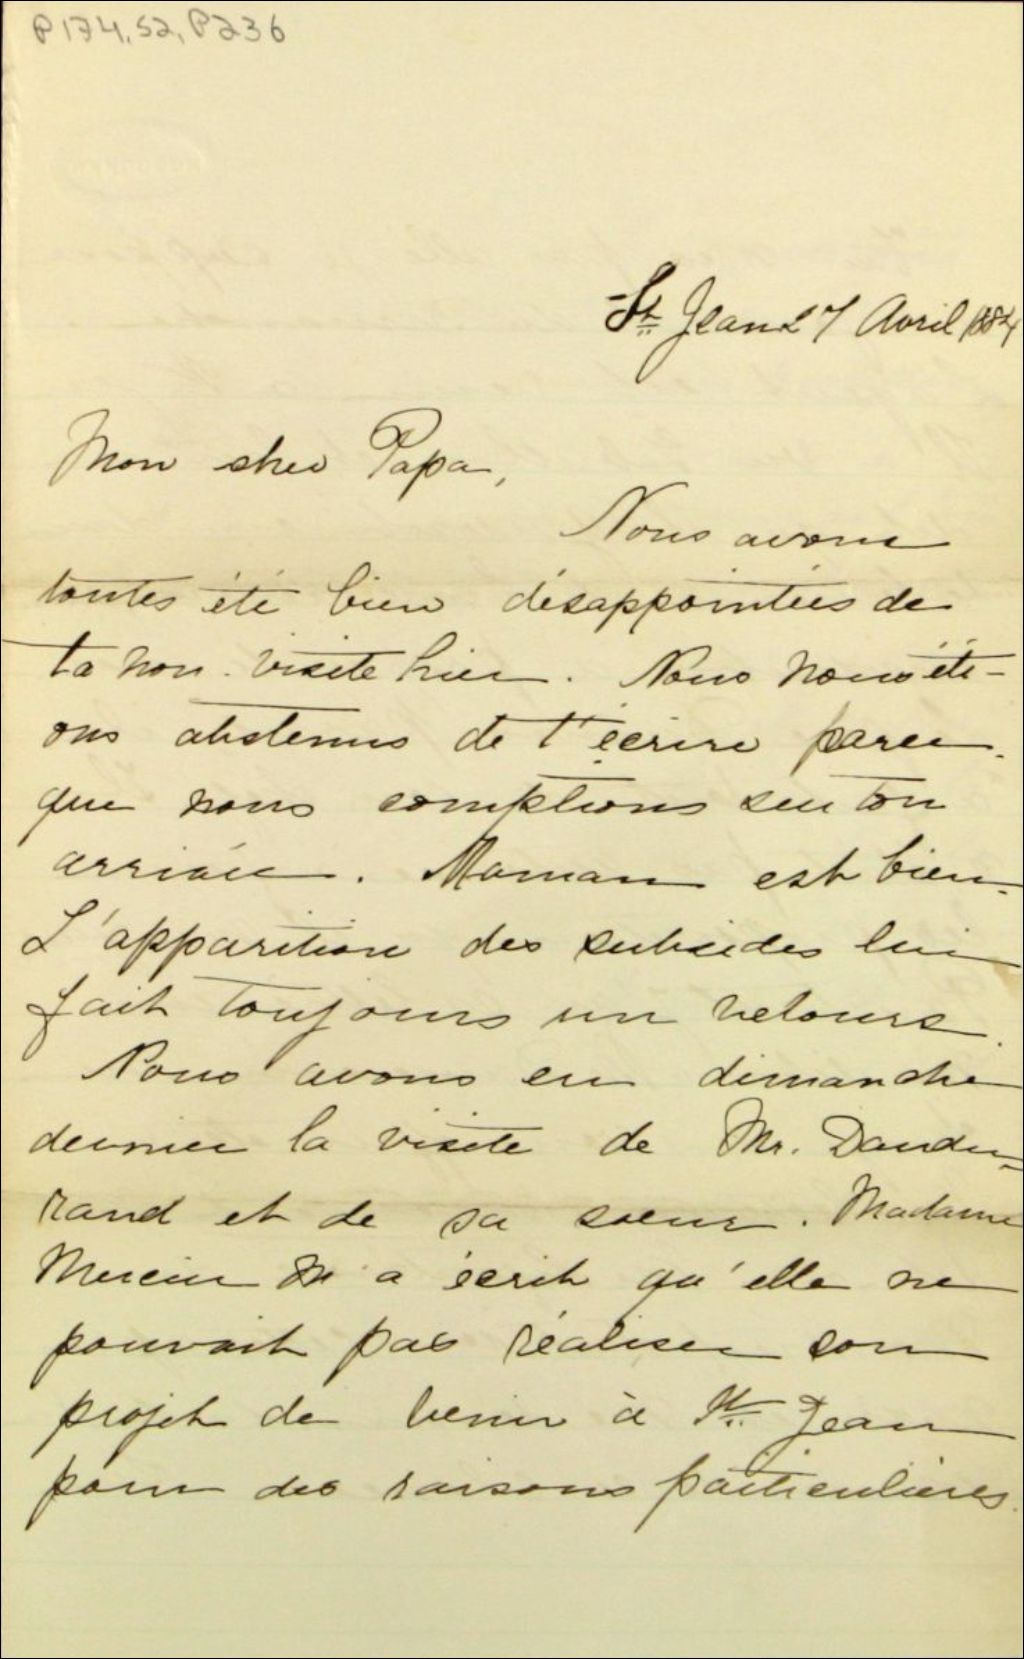 P174,S2,P236
St Jean 27 Avril 1884
Mon cher Papa,
Nous avons
toutes été bien désappointées de
ta non-visite hier. Nous nous éti-
ons abstenus de t'écrire parce-
que nous comptions sur ton
arrivée. Maman est bien.
L'apparition des subsides lui
fait toujours un velours.
Nous avons eu dimanche
dernier la visite de Mr. Dandu-
rand et de sa soeur. Madame
Mercier m'a écrit qu'elle ne
pouvait pas réaliser son
projet de venir à St Jean
pour des raisons particulières.